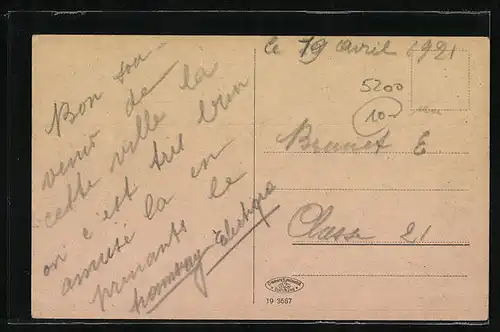 Bon sou-
venir de
cette ville la
on c'est tres bien
amusé la en
prenants le
tramway Electrique
le 19 avril 1921
5200
10-
Brunet E
Classe 21
19 3687